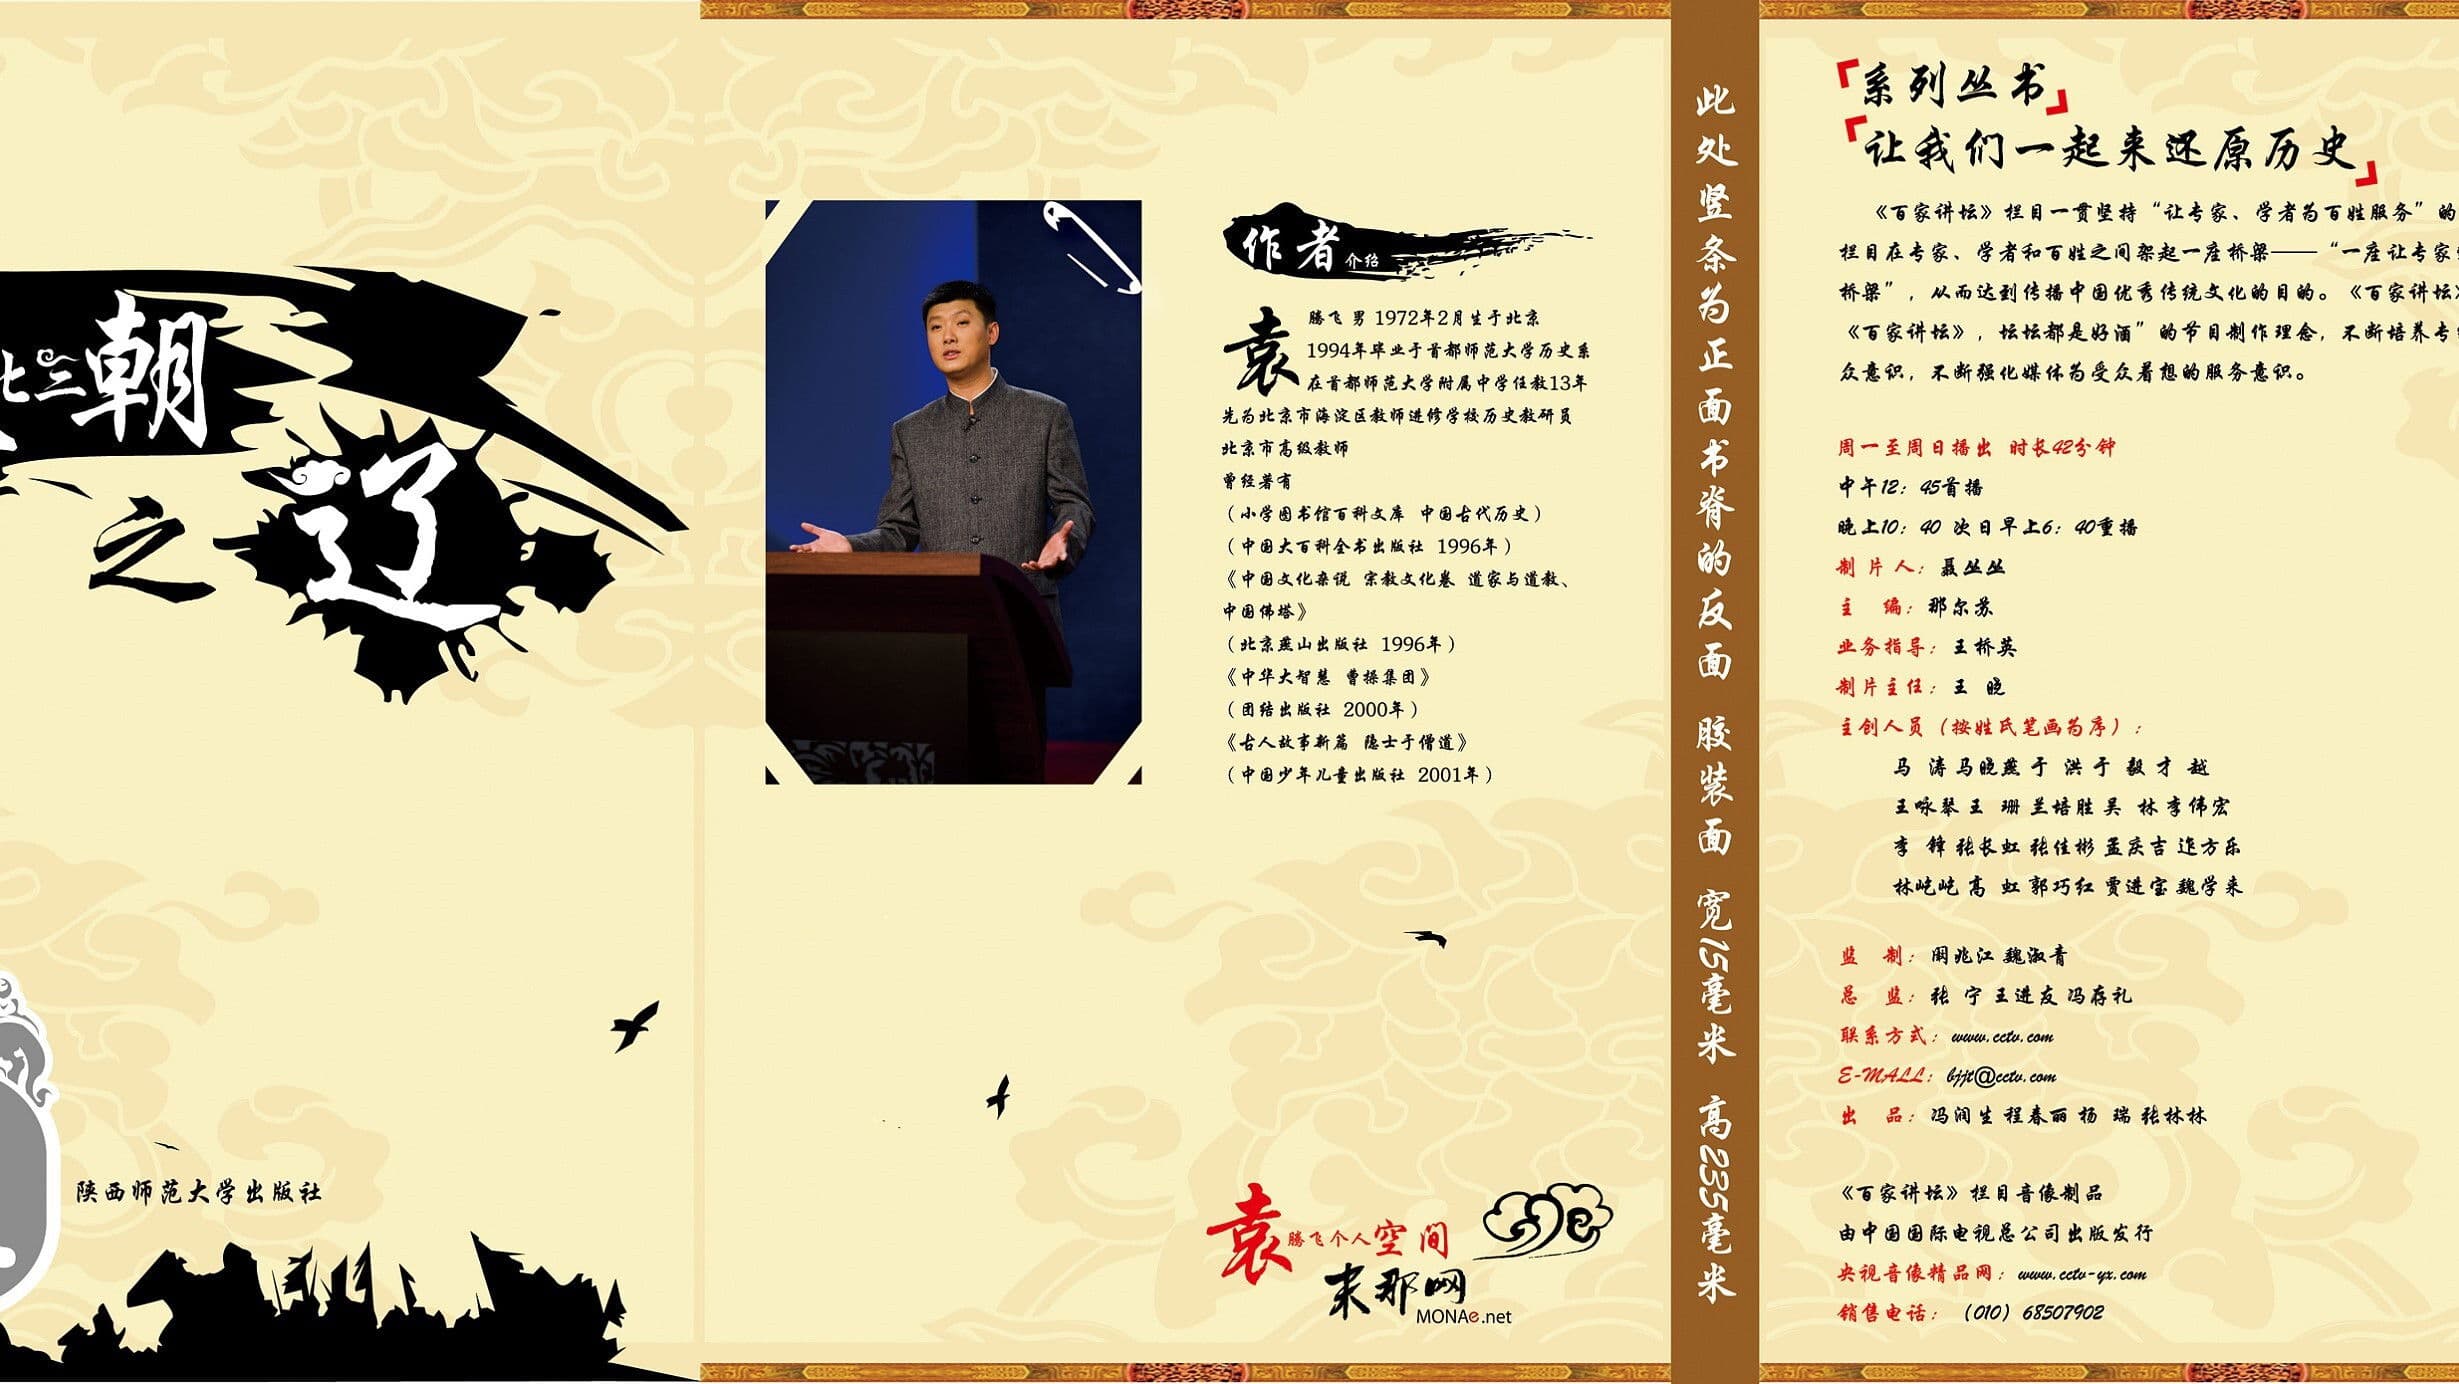 朝
之
辽
陕西师范大学出版社
作者介绍
袁腾飞 男 1972年2月生于北京
1994年毕业于首都师范大学历史系
在首都师范大学附属中学任教13年
先为北京市海淀区教师进修学校历史教研员
北京市高级教师
曾经著有
(小学图书馆百科文库 中国古代历史)
(中国大百科全书出版社 1996年)
《中国文化杂说 宗教文化卷 道家与道教、
中国佛塔》
(北京燕山出版社 1996年)
《中华大智慧 曹操集团》
(团结出版社 2000年)
《古人故事新篇 隐士于僧道》
(中国少年儿童出版社 2001年)
袁腾飞个人空间
末那网
MONAe.net
此处竖条为正面书脊的反面 胶装面 宽15毫米 高235毫米
「系列丛书」
「让我们一起来还原历史」
《百家讲坛》栏目一贯坚持“让专家、学者为百姓服务”的
栏目在专家、学者和百姓之间架起一座桥梁——“一座让专家
桥梁”，从而达到传播中国优秀传统文化的目的。《百家讲坛》
《百家讲坛》，坛坛都是好酒”的节目制作理念，不断培养专
众意识，不断强化媒体为受众着想的服务意识。
周一至周日播出 时长42分钟
中午12：45首播
晚上10：40 次日早上6：40重播
制片人：聂丛丛
主 编：那尔苏
业务指导：王桥英
制片主任：王 晓
主创人员（按姓氏笔画为序）：
马 涛 马晓燕 于 洪 于 毅 才 越
王咏琴 王 珊 兰培胜 吴 林 李伟宏
李 锋 张长虹 张佳彬 孟庆吉 迮方乐
林屹屹 高 虹 郭巧红 贾进宝 魏学来
监 制：阚兆江 魏淑青
总 监：张 宁 王进友 冯存礼
联系方式：www.cctv.com
E-MALL：bjjt@cctv.com
出 品：冯润生 程春丽 杨 瑞 张林林
《百家讲坛》栏目音像制品
由中国国际电视总公司出版发行
央视音像精品网：www.cctv-yx.com
销售电话：（010）68507902